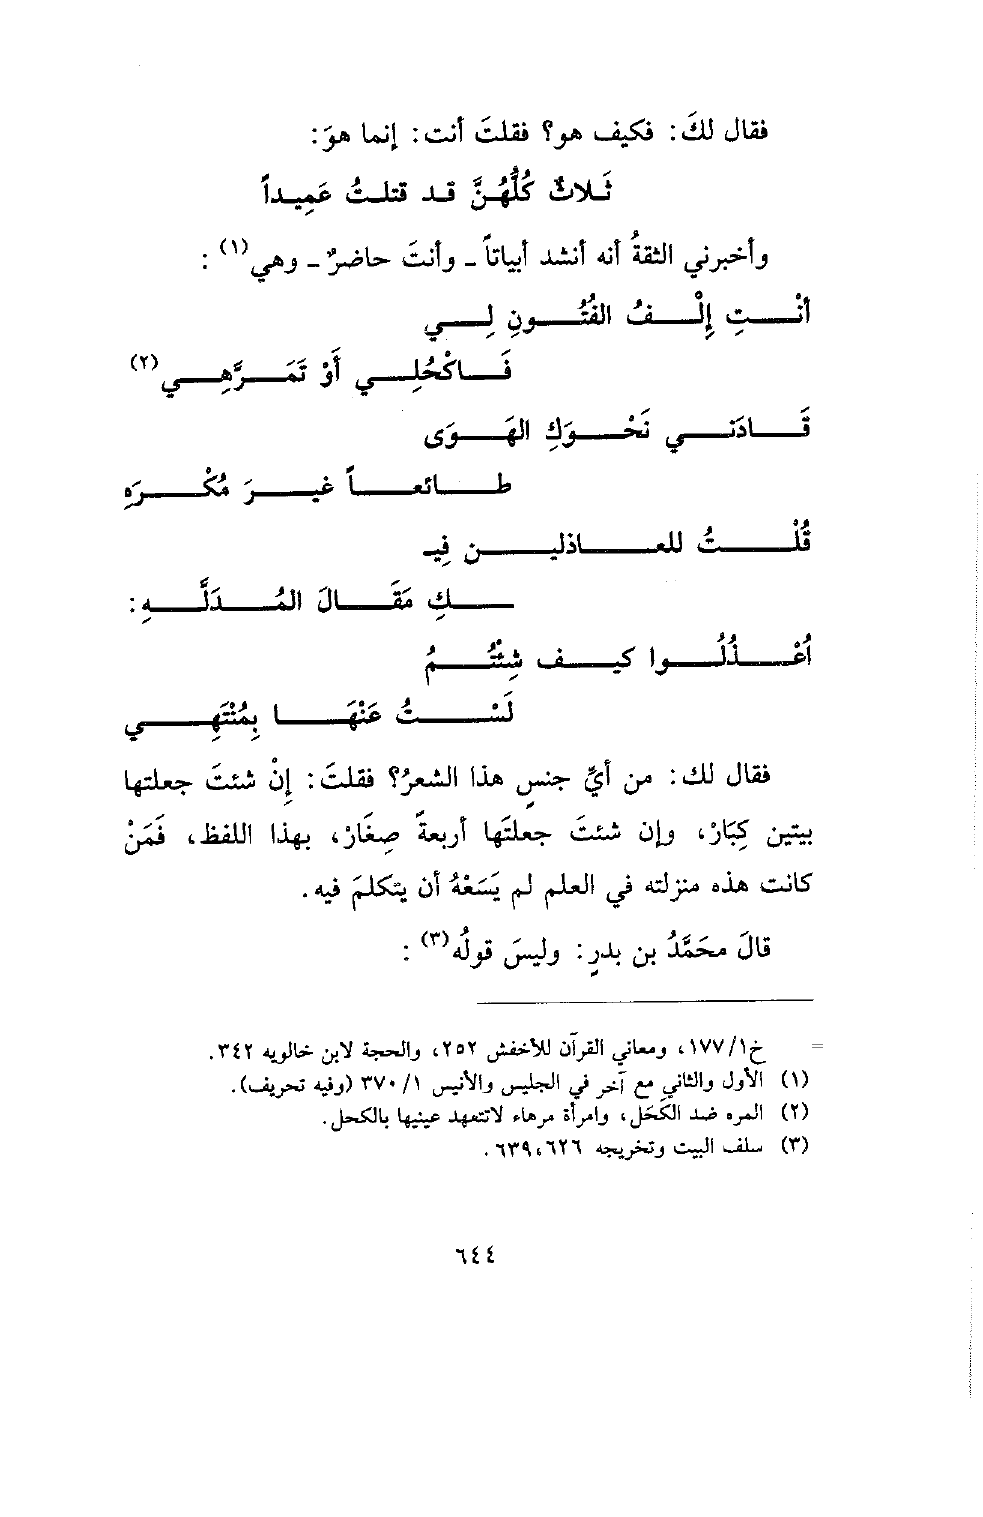 فقال لكَ: فكيف هو؟ فقلتَ أنت: إنما هوَ:
ثَلاثٌ كُلُّهُنَّ قد قتلتُ عَمِيداً
وأخبرني الثقةُ أنه أنشد أبياتاً - وأنتَ حاضرٌ - وهي(١):
أنْتِ إِلْفُ الفُتُونِ لِي
فَاكْحُلِي أَوْ تَمَرَّهِي(٢)
قَادَني نَحْوَكِ الهَوَى
طائعاً غيرَ مُكْرَهِ
قُلْتُ للعاذلين فِيـ
ـكِ مَقَالَ المُدَلَّهِ:
اُعْذُلُوا كيف شِئْتُمُ
لَسْتُ عَنْهَا بِمُنْتَهِي
فقال لك: من أيِّ جنسٍ هذا الشعرُ؟ فقلتَ: إِنْ شئتَ جعلتها
بيتين كِبَارْ، وإن شئتَ جعلتَها أربعةً صِغَارْ، بهذا اللفظ، فَمَنْ
كانت هذه منزلته في العلم لم يَسَعْهُ أن يتكلمَ فيه.
قالَ محَمَّدُ بن بدرٍ: وليسَ قولُه(٣):
= خ١/١٧٧، ومعاني القرآن للأخفش ٢٥٢، والحجة لابن خالويه ٣٤٢.
(١) الأول والثاني مع آخر في الجليس والأنيس ١/٣٧٠ (وفيه تحريف).
(٢) المره ضد الكَحَل، وامرأة مرهاء لاتتعهد عينيها بالكحل.
(٣) سلف البيت وتخريجه ٦٢٦، ٦٣٩.
٦٤٤